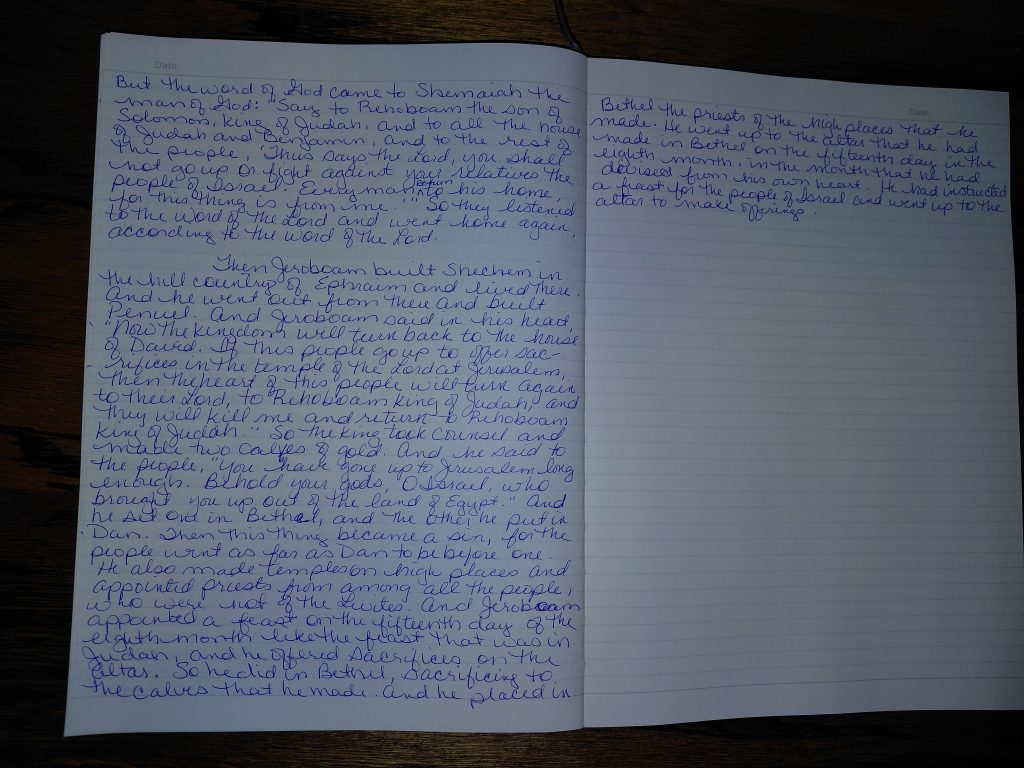 Date:
But the word of God came to Shemaiah the
man of God: "Say to Rehoboam the son of
Solomon, king of Judah, and to all the house
of Judah and Benjamin, and to the rest of
the people, 'Thus says the Lord, you shall
not go up or fight against your relatives the
people of Israel. Every man return to his home,
for this thing is from me.'" So they listened
to the word of the Lord and went home again,
according to the word of the Lord.
Then Jeroboam built Shechem in
the hill country of Ephraim and lived there.
And he went out from there and built
Penuel. And Jeroboam said in his heart,
"Now the kingdom will turn back to the house
of David. If this people go up to offer sac-
rifices in the temple of the Lord at Jerusalem,
then the heart of this people will turn again
to their Lord, to Rehoboam king of Judah, and
they will kill me and return to Rehoboam
king of Judah." So the king took counsel and
made two calves of gold. And he said to
the people, "You have gone up to Jerusalem long
enough. Behold your gods, O Israel, who
brought you up out of the land of Egypt." And
he set one in Bethel, and the other he put in
Dan. Then this thing became a sin, for the
people went as far as Dan to be before one.
He also made temples on high places and
appointed priests from among all the people,
who were not of the Levites. And Jeroboam
appointed a feast on the fifteenth day of the
eighth month like the feast that was in
Judah, and he offered sacrifices on the
altar. So he did in Bethel, sacrificing to
the calves that he made. And he placed in
Date:
Bethel the priests of the high places that he
made. He went up to the altar that he had
made in Bethel on the fifteenth day in the
eighth month, in the month that he had
devised from his own heart. He had instructed
a feast for the people of Israel and went up to the
altar to make offerings.